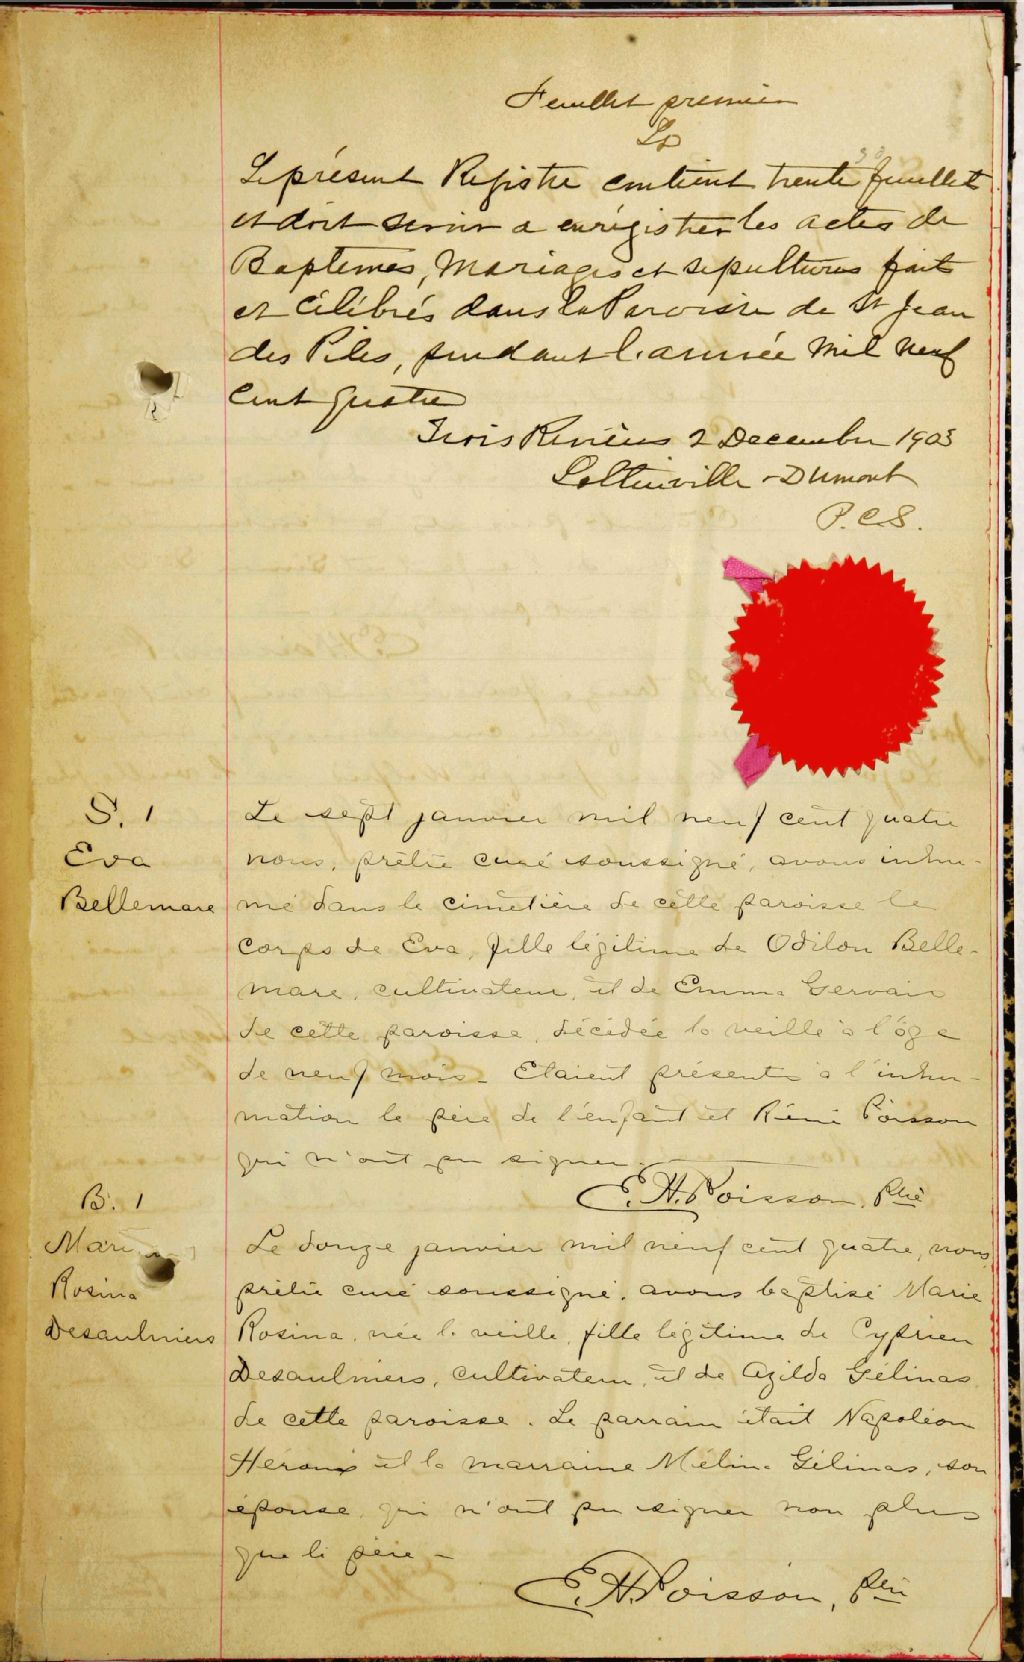 Feuillet premier
LD
Le présent Registre contient trente feuillets
et doit servir a enrégistrer les actes de
Baptemes, Mariages et sepultures faits
et célébrés dans la Paroisse de St Jean
des Piles, pendant l'année Mil neuf
Cent quatre
Trois Rivières 2 Decembre 1903
Lottinville - Dumont
P.C.S.
S. 1
Eva
Bellemare
Le sept janvier mil neuf cent quatre
nous, prêtre curé soussigné, avons inhu-
mé dans le cimetière de cette paroisse le
corps de Eva, fille légitime de Odilon Belle-
mare, cultivateur, et de Emma Gervais
de cette paroisse, décédée la veille à l'âge
de neuf mois - Etaient présents à l'inhu-
mation le père de l'enfant et Rémi Poisson
qui n'ont pu signer.
E. H. Poisson, ptre
B. 1
Marie
Rosina
Desaulniers
Le douze janvier mil neuf cent quatre, nous,
prêtre curé soussigné, avons baptisé Marie
Rosina, née la veille, fille légitime de Cyprien
Desaulniers, cultivateur, et de Azilda Gélinas
de cette paroisse. Le parrain était Napoléon
Héroux et la marraine Mélina Gélinas, son
épouse, qui n'ont pu signer non plus
que le père -
E. H. Poisson, ptre